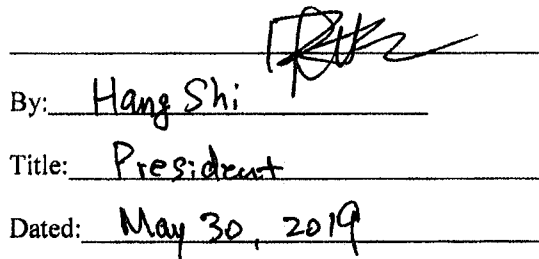 By: Hang Shi
Title: President
Dated: May 30, 2019